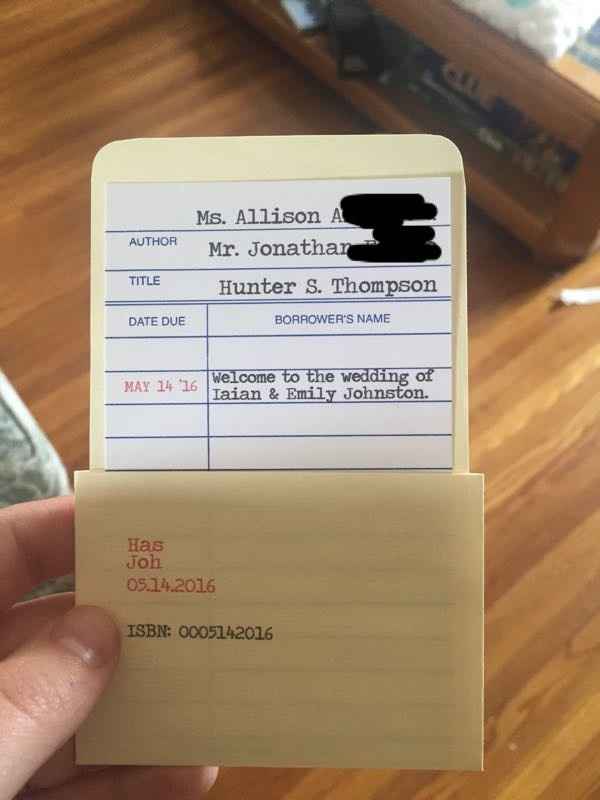 Ms. Allison A
AUTHOR Mr. Jonathan
TITLE Hunter S. Thompson
DATE DUE BORROWER'S NAME
MAY 14 '16 Welcome to the wedding of
Iaian & Emily Johnston.
Has
Joh
05.14.2016
ISBN: 0005142016